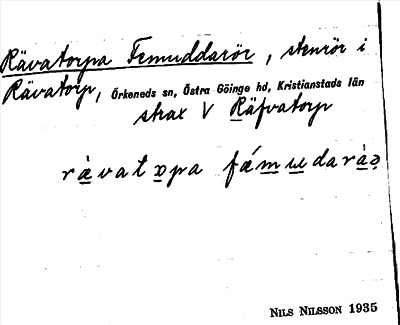 Rävatorpa Femuddarör, stenrör i
Rävatorp, Örkeneds sn, Östra Göinge hd, Kristianstads län
strax V Räfvatorp
rävatɒpa fǽmɯdaràə
NILS NILSSON 1935